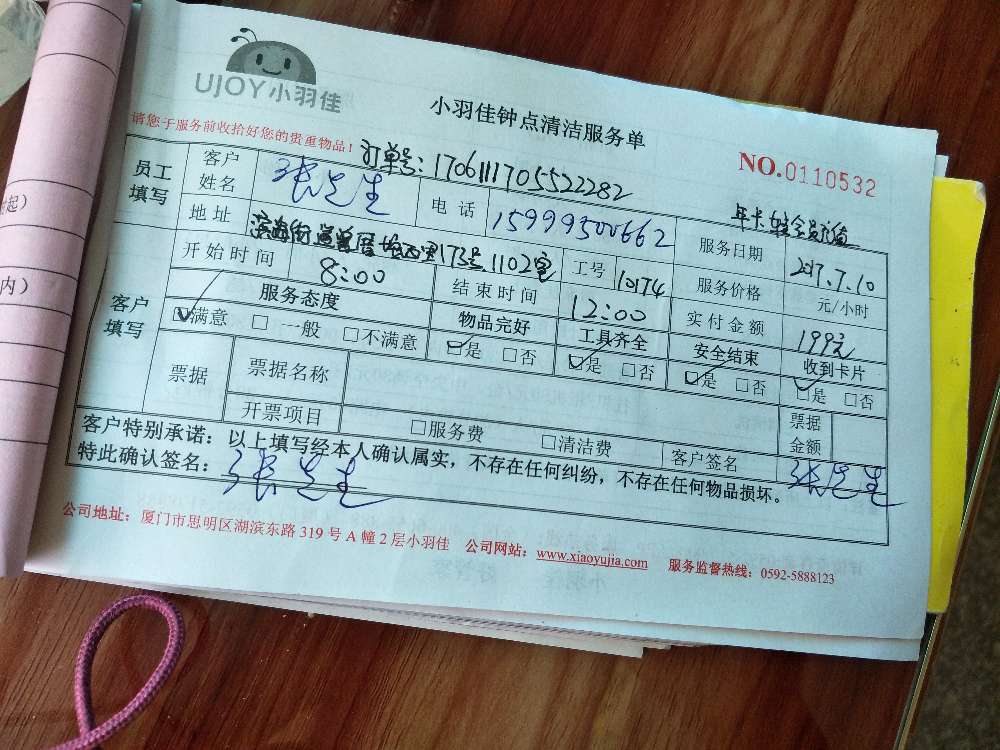 UJOY小羽佳
小羽佳钟点清洁服务单
NO.0110532
请您于服务前收拾好您的贵重物品！
订单号：170611170552228​2
员工填写 客户姓名 张先生 电话 15999500662 服务日期 2017.7.10
地址 1102室 工号 10174 服务价格 元/小时
客户填写 开始时间 8:00 结束时间 12:00 实付金额 199元
服务态度 物品完好 工具齐全 安全结束 收到卡片
☑满意 □一般 □不满意 ☑是 □否 ☑是 □否 ☑是 □否 ☑是 □否
票据 票据名称 票据金额
开票项目 □服务费 □清洁费 客户签名 张先生
客户特别承诺：以上填写经本人确认属实，不存在任何纠纷，不存在任何物品损坏。
特此确认签名：张先生
公司地址：厦门市思明区湖滨东路 319 号 A 幢 2 层小羽佳 公司网站：www.xiaoyujia.com 服务监督热线：0592-5888123
起）
内）